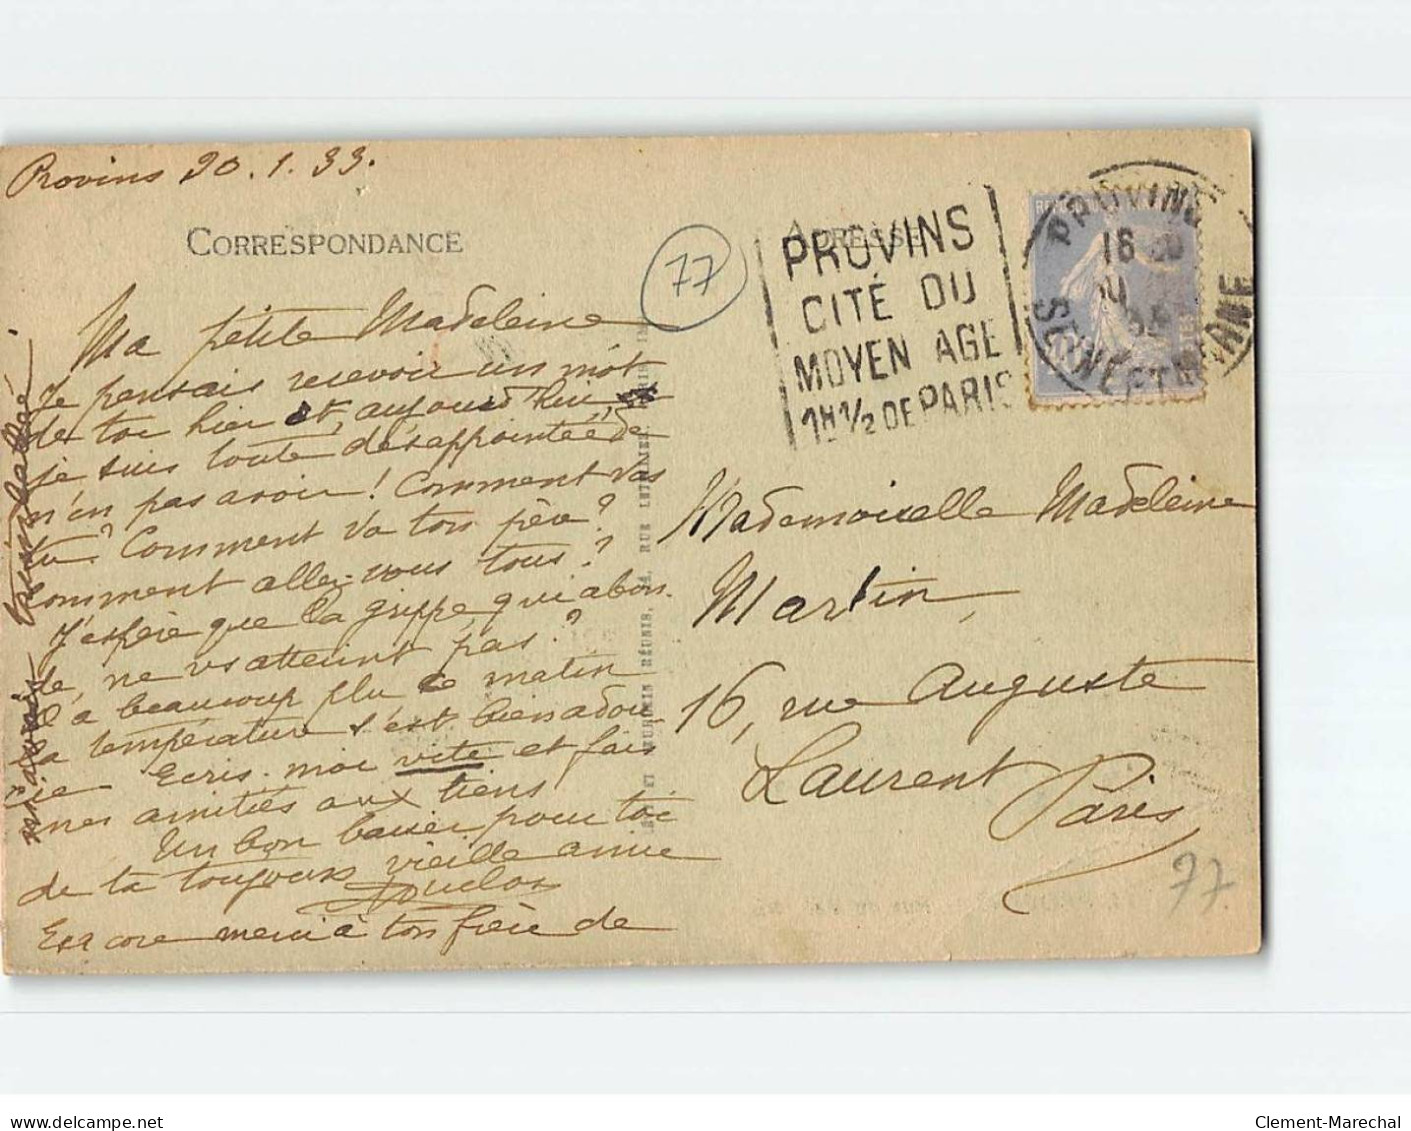 Provins 30.1.33.
CORRESPONDANCE
ADRESSE
77
PROVINS
CITÉ DU
MOYEN AGE
1H 1/2 DE PARIS
PROVINS
16
SEINE ET MARNE
Ma petite Madeleine
Je pensais recevoir un mot
de toi hier et, aujourd'hui,
je suis toute désappointée de
n'en pas avoir! Comment vas
tu? Comment va ton père?
Comment allez-vous tous?
J'espère que la grippe, qui abon-
de, ne vs atteint pas?
Il a beaucoup plu ce matin
la température s'est bien adou-
cie Ecris-moi vite et fais
mes amitiés aux tiens
Un bon baiser pour toi
de ta toujours vieille amie
Encore merci à ton frère de
m'avoir trimballée!
Mademoiselle Madeleine
Martin,
16, rue Auguste
Laurent
Paris
77.
RUE LETELLIER, PARIS
RÉUNIS,
Clement-Marechal
www.delcampe.net